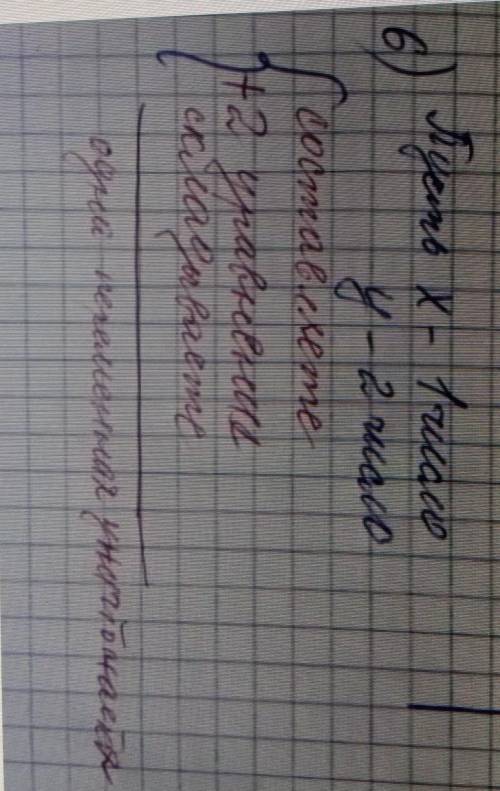 6) Пусть х - 1 число
у - 2 число
составляете
+ 2 уравнения
складываете
одна неизменная уничтожается